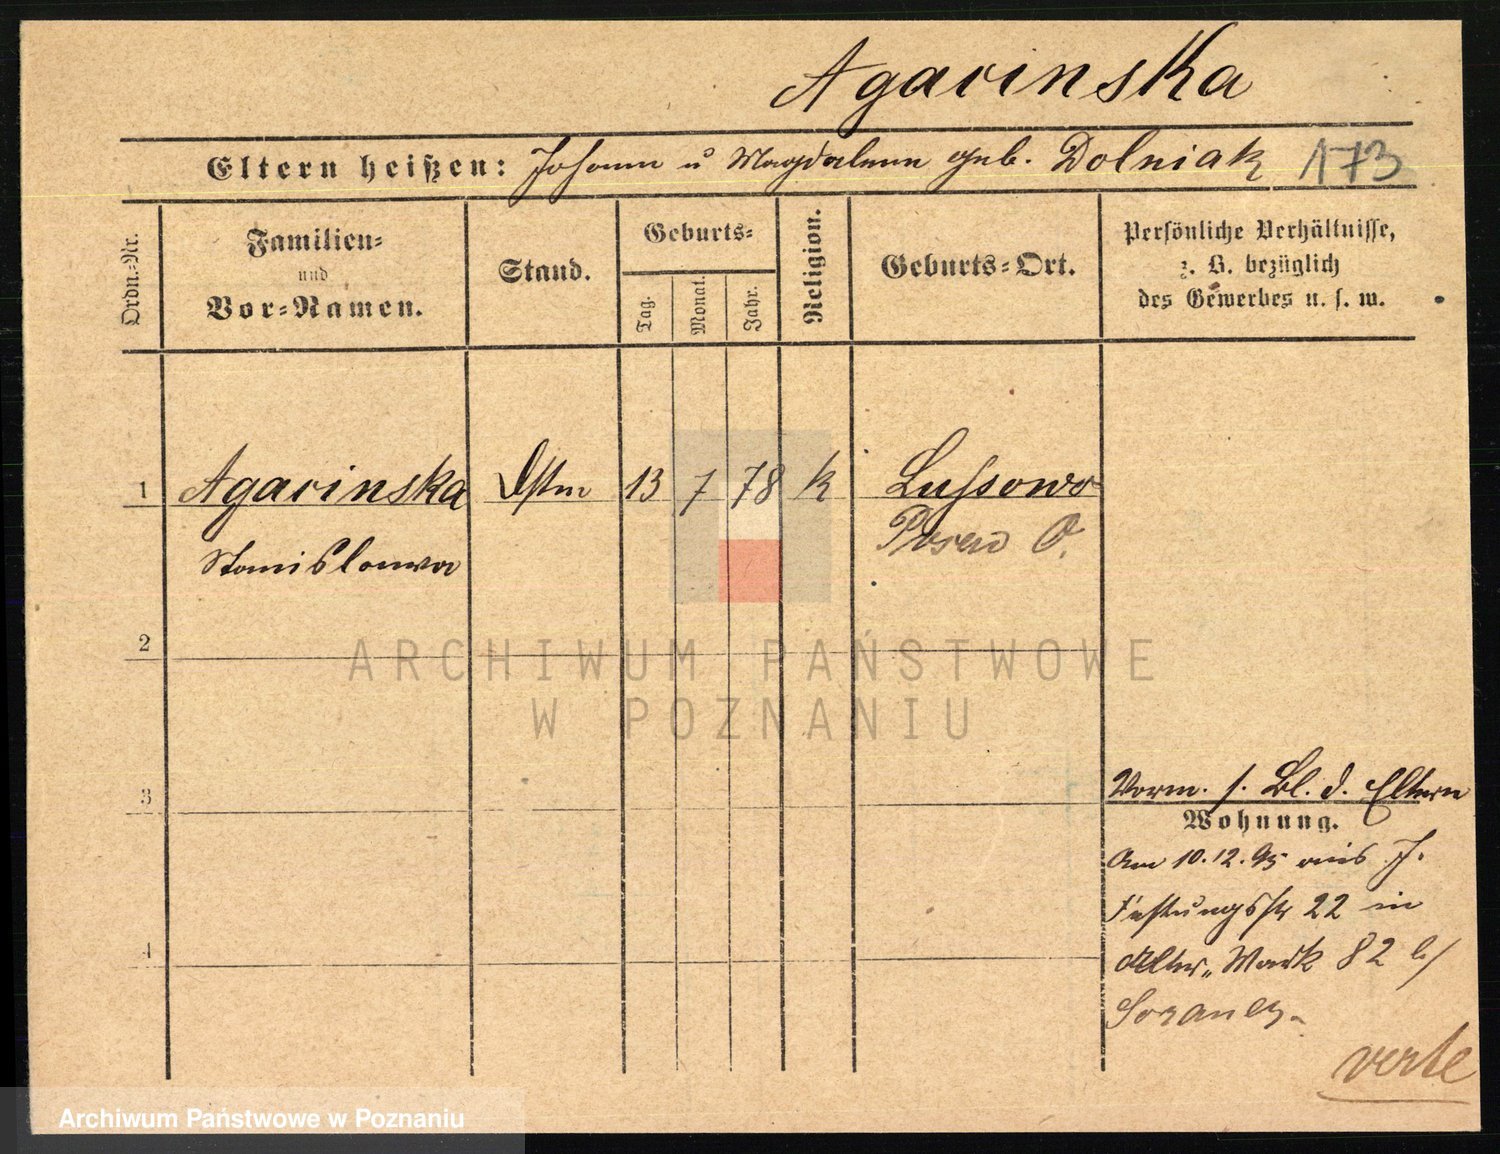 Agacinska
Eltern heißen: Johann u Magdalena geb. Dolniak 173
Ordn.-Nr.
Familien-
und
Vor-Namen.
Stand.
Geburts-
Tag.
Monat.
Jahr.
Religion.
Geburts-Ort.
Persönliche Verhältnisse,
z. B. bezüglich
des Gewerbes u. s. w.
1 Agacinska 13 7 78 k Lussowo
Stanislawa Posen O.
2
3
4
Vorm. s. Bl. d. Eltern
Wohnung.
Am 10.12.95 aus J.
Festungsstr 22 in
Alter Markt 82 b/
verte
ARCHIWUM PAŃSTWOWE
W POZNANIU
Archiwum Państwowe w Poznaniu